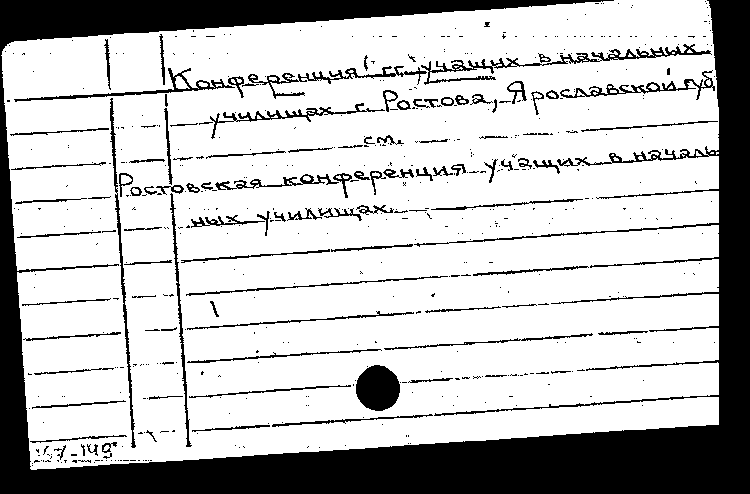 Конференция гг. учащих в начальных
училищах г. Ростова, Ярославской губ
см.
Ростовская конференция учащих в началь
ных училищах.